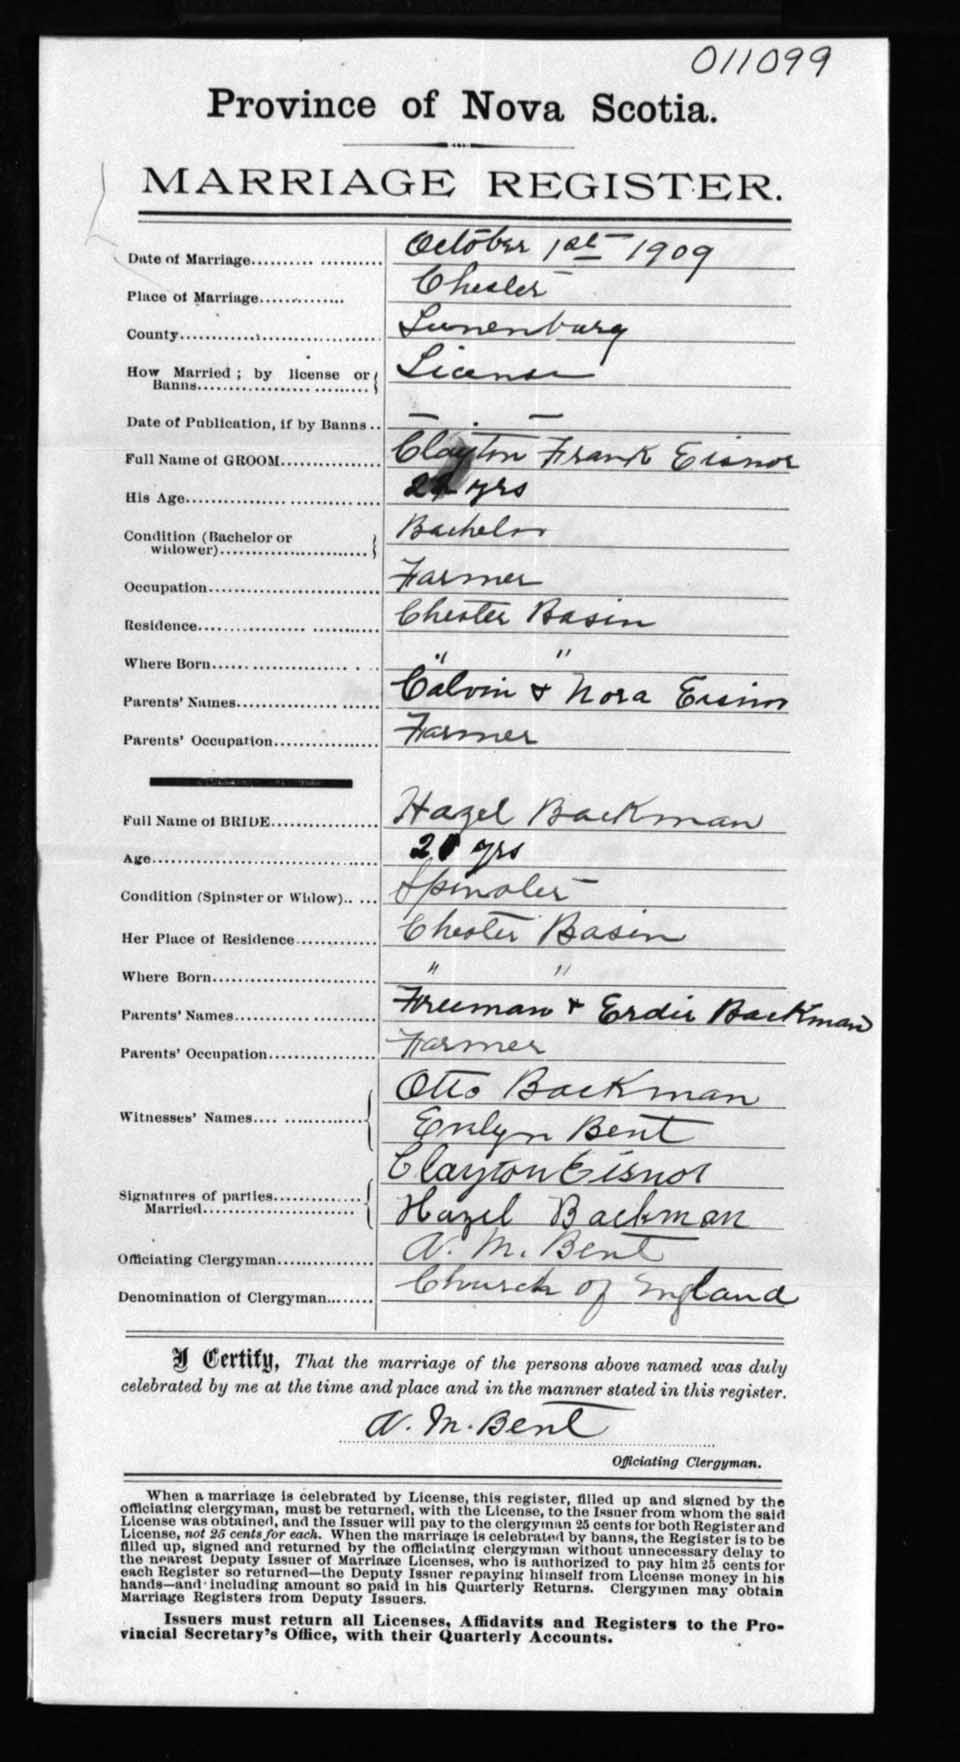 011099
Province of Nova Scotia.
MARRIAGE REGISTER.
Date of Marriage.......... ........... October 1st 1909
Place of Marriage.............. Chester
County................................... Lunenburg
How Married ; by license or
Banns............................... License
Date of Publication, if by Banns .. — —
Full Name of GROOM............... Clayton Frank Eisnor
His Age.................................. yrs
Condition (Bachelor or
widower)........................... Bachelor
Occupation.............................. Farmer
Residence................................ Chester Basin
Where Born...................... . .. " "
Parents' Names......................... Calvin & Nora Eisnor
Parents' Occupation.................. Farmer
Full Name of BRIDE.................. Hazel Backman
Age........................................ yrs
Condition (Spinster or Widow).. ... Spinster
Her Place of Residence............. Chester Basin
Where Born............................. " "
Parents' Names......................... Freeman & Erdie Backman
Parents' Occupation.................. Farmer
Otto Backman
Witnesses' Names.... ...............
Evelyn Bent
Clayton Eisnor
Signatures of parties..............
Married...........................
Hazel Backman
Officiating Clergyman................ A. M. Bent
Denomination of Clergyman........ Church of England
I Certify, That the marriage of the persons above named was duly
celebrated by me at the time and place and in the manner stated in this register.
A. M. Bent
Officiating Clergyman.
When a marriage is celebrated by License, this register, filled up and signed by the
officiating clergyman, must be returned, with the License, to the Issuer from whom the said
License was obtained, and the Issuer will pay to the clergyman 25 cents for both Register and
License, not 25 cents for each. When the marriage is celebrated by banns, the Register is to be
filled up, signed and returned by the officiating clergyman without unnecessary delay to
the nearest Deputy Issuer of Marriage Licenses, who is authorized to pay him 25 cents for
each Register so returned—the Deputy Issuer repaying himself from License money in his
hands—and including amount so paid in his Quarterly Returns. Clergymen may obtain
Marriage Registers from Deputy Issuers.
Issuers must return all Licenses, Affidavits and Registers to the Pro-
vincial Secretary's Office, with their Quarterly Accounts.